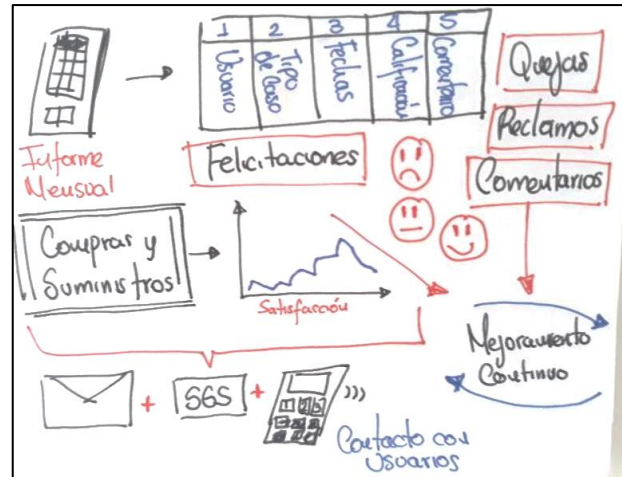 1 2 3 4 5
Usuario
Tipo
de Caso
Fechas
Calificación
Comentario
Quejas
Reclamos
Comentarios
Informe
Mensual
Felicitaciones
Compras y
Suministros
Satisfacción
Mejoramiento
Continuo
+ SGS +
Contacto con
Usuarios